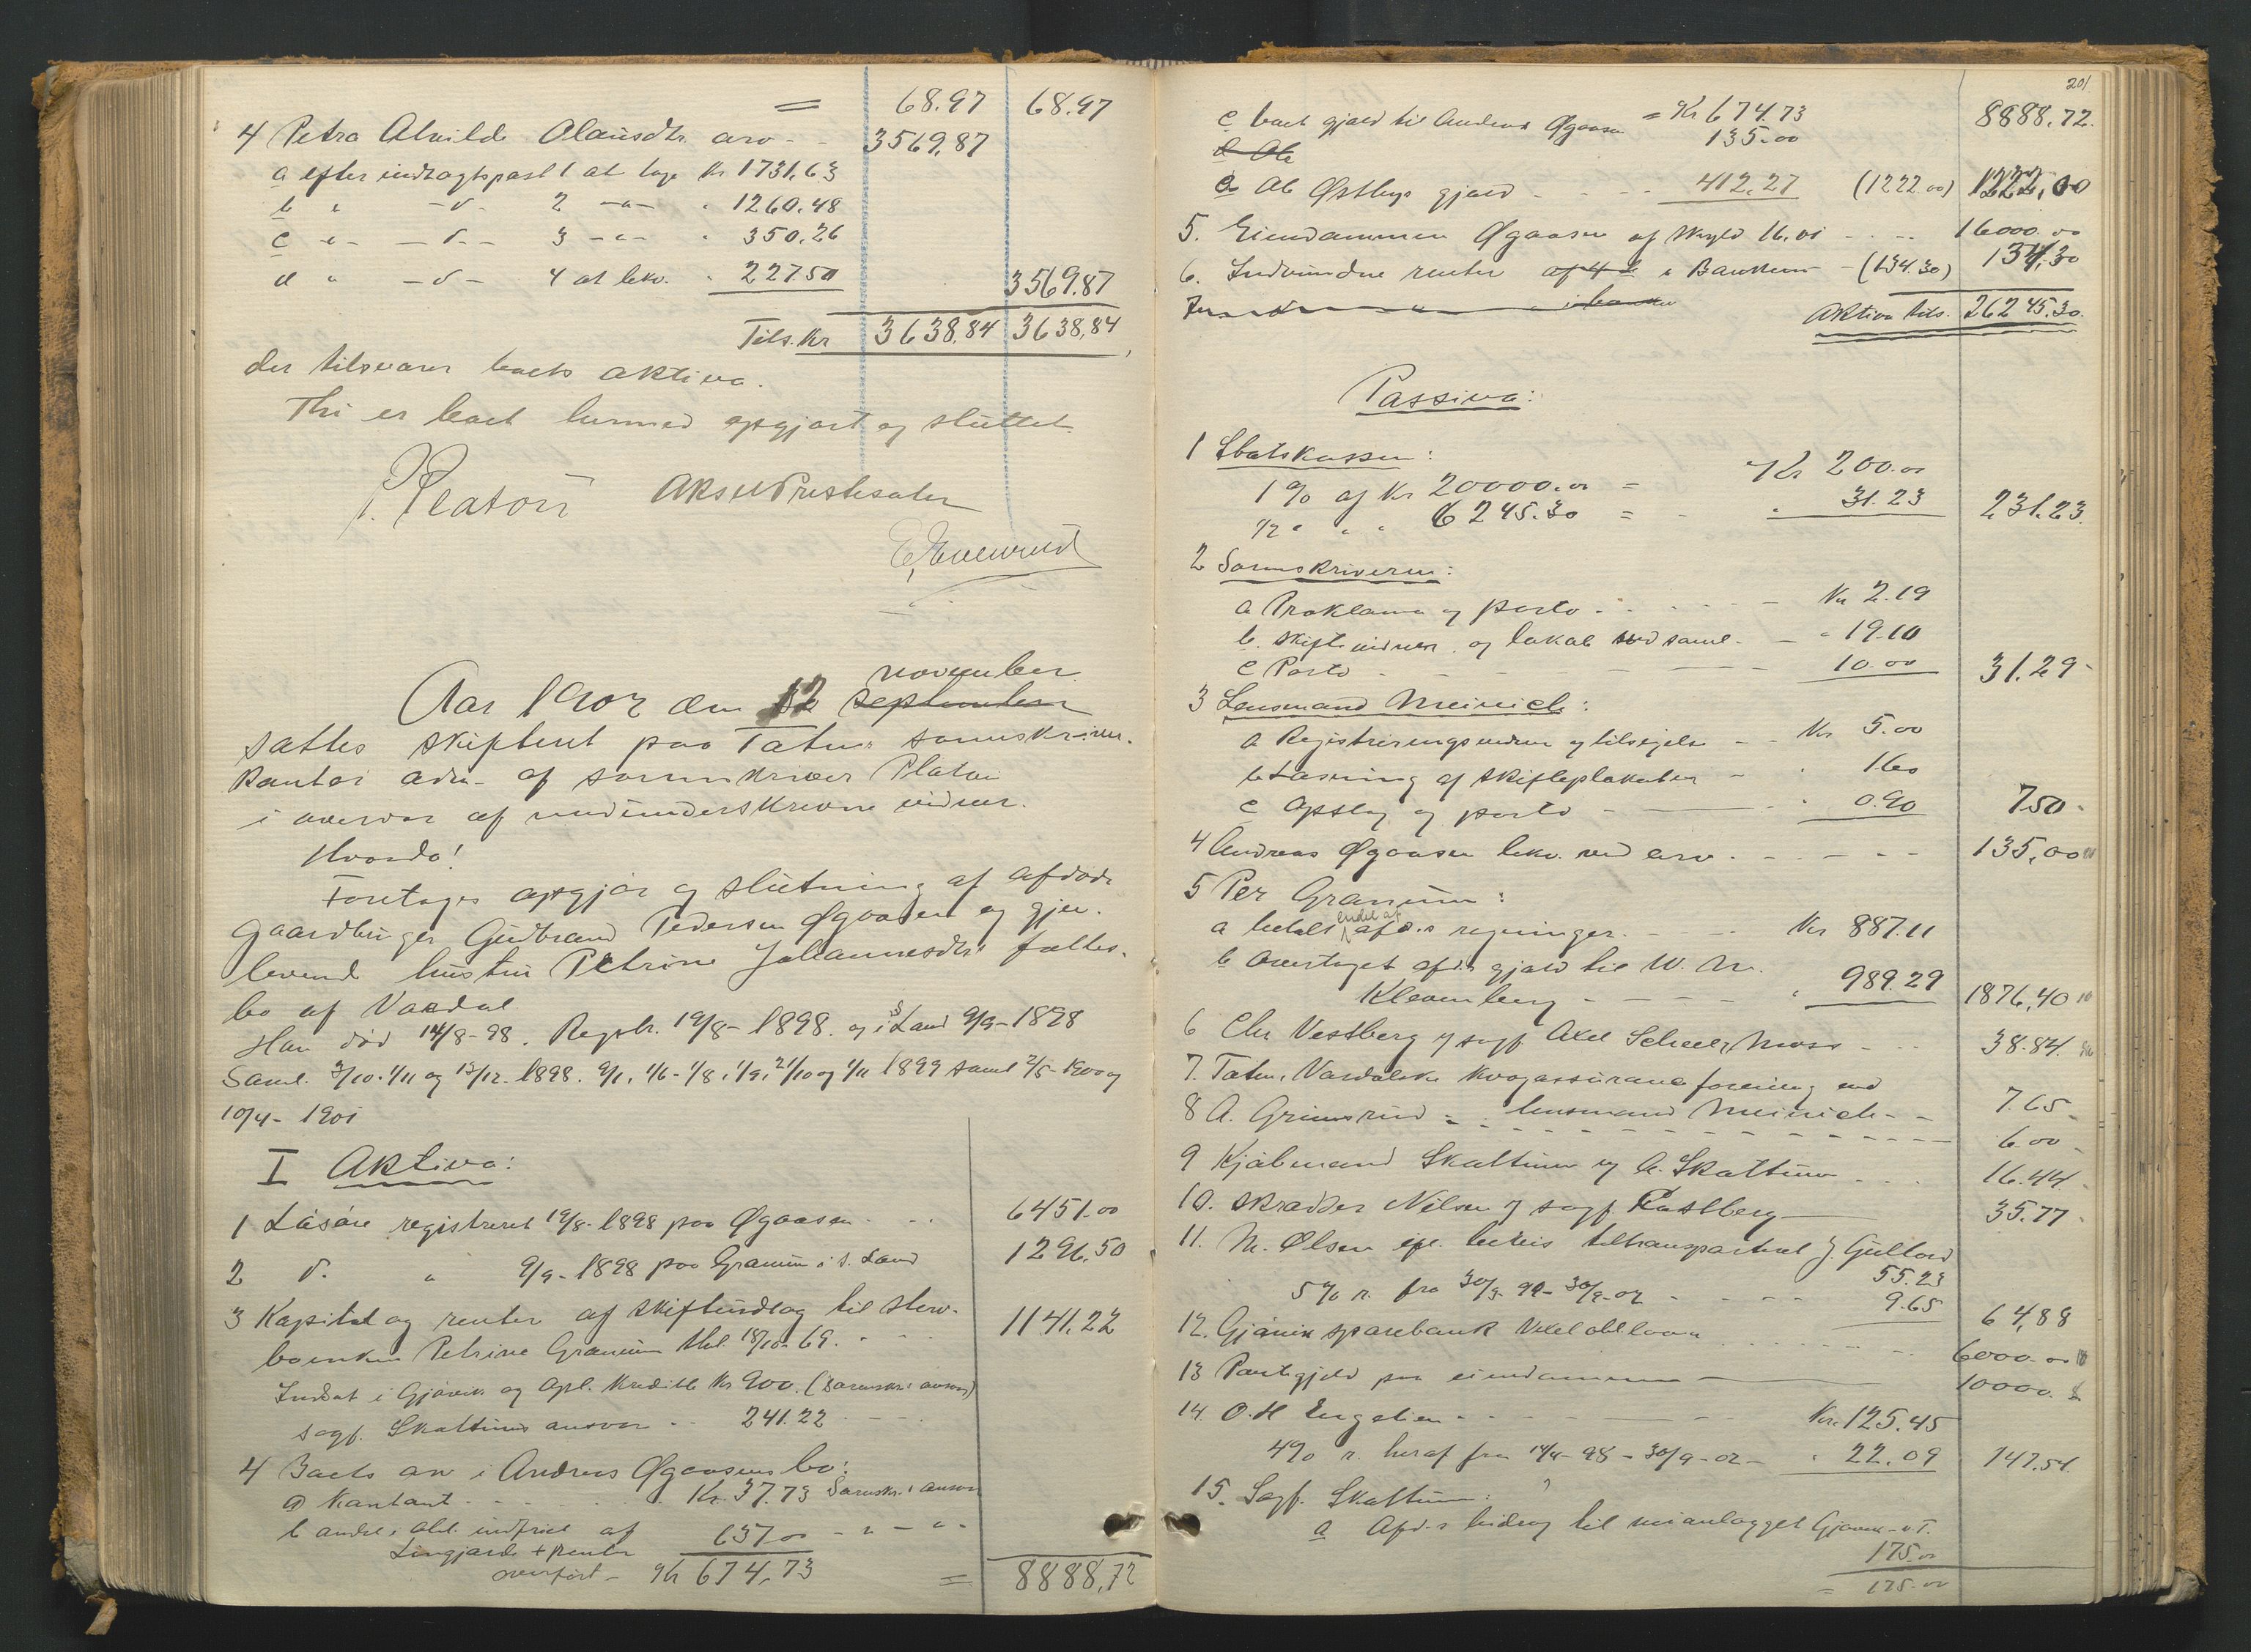 = 68.97 68.97
4 Petra Alvilde Olausdtr. arv - - 3569,87
a efter indtægtspost 1 at tage Kr 1731,63
b " -d- 2 -"- " 1260.48
c -"- -d- 3 -"- " 350,26
d " -d- 4 at bekv. " 227.50 3569.87
Tils. Kr 3638,84 3638,84
der tilsvarer boets aktiva.
Thi er boet hermed opgjort og sluttet.
Platou Aksel Prestesater
november
Aar 1902 den 12 september
sattes skifteret paa Toten sorenskriver-
kontor adm. af sorenskriver Platou
i overvær af medunderskrevne vidner.
Hvorda!
Foretoges opgjør og slutning af afdøde
gaardbruger Gudbrand Pedersen Øgaasen og gjen-
levende hustru Petrine Johannesdtrs fælles-
bo af Vardal
Han død 14/8-98. Regstr. 19/8-1898. og i S. Land 9/9-1898
Saml. 3/10. 1/11 og 13/12. 1898. 9/1, 1/6- 1/8, 1/9, 21/10 og 1/11 1899 samt 2/5-1900 og
10/4-1901
I Aktiva:
1 Løsøre registreret 19/8-1898 paa Øgaasen - - 6451.00
2 d. " 9/9-1898 paa Granum i S. Land 1296.50
3 Kapital og renter af skifteudlæg til
enken Petrine Granum 18/10-69. - - - 1141.22
Indsat i Gjøvik og Opl. Kreditb. Kr 900. (Sorenskr.s ansvar)
sagf. Skattums ansvar - - 241.22 - - -
4 Boets arv i Andreas Øgaasens bo:
a) Kontant - - - Kr. 37.73 Sorenskr.s ansvar
b andel i obl. indfriet af 637.00 - " - " -
Lingjærde + renter
overført - Kr 674,73 = 8888,72
201
c boets gjæld til Andreas Øgaasen = Kr 674.73 8888.72.
135.00
d Ole
d Ole Østbys gjæld - - - - 412.27 (1222.00) 1222,00
5. Eiendommen Øgaasen af skyld 16.01 - - - - 16000.00
6. Indvundne renter i Banken - (134.30) 134,30
Aktiva tils. 26245.30.
Passiva:
1 Statskassen:
1% af Kr 20000.00 = Kr 200.00
1/2 " " " 6245.30 = - " 31.23 231.23.
2 Sorenskriveren:
a Proklama og porto - - - - - Kr 2.19
b. Skiftevidner og lokale ved saml. - " 19.10
c Porto - - - - 10.00 31.29-
3 Lensmand Meinich:
a Registreringsvidner og tilsigelse - - Kr 5.00
b Læsning af skifteplakaten - " 1.60
c Opslag og porto - - " 0.90 7.50-
4 Andreas Øgaasen bekv. ved arv - - - - - 135,00
5 Per Granum:
a betalt endel af afd.s regninger - - - - Kr 887.11
b Overtaget afd.s gjæld til W. M.
Klevenberg - - - - " 989.29 1876,40
6 Chr Vestberg v sagf Axel Scheel, Moss - - - 38.84.
7. Toten, Vardalske kvægassuranceforening ved
lensmand Meinich - - 7.65-
8 A. Grimsrud - - - - - - - - 6.00-
9 Kjøbmand Skattum v A. Skattum - - - 16.44.
10. Skrædder Nilsen v sagf. Rustberg - 35.77.
11. M. Olsen bevis tiltransporteret J. Gullord
55.23
5% r. fra 30/3-99-30/9-02 - - - - 9.65 64,88
12. Gjøvik sparebank Vexelobl.laan - - - - - - - 6000.00
13 Pantegjeld paa eiendommen - 10000.
14. O. H Engelien - - - - - - Kr. 125.45
4% r. heraf fra 14/4-98-30/9-02 - " 22.09 147.54.
15. Sagf. Skattum:
a Afd.s bidrag til veianlægget Gjøvik - v T.
175.00
= 175.00